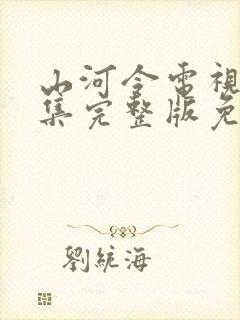 山河令電視
集完整版免
劉統海